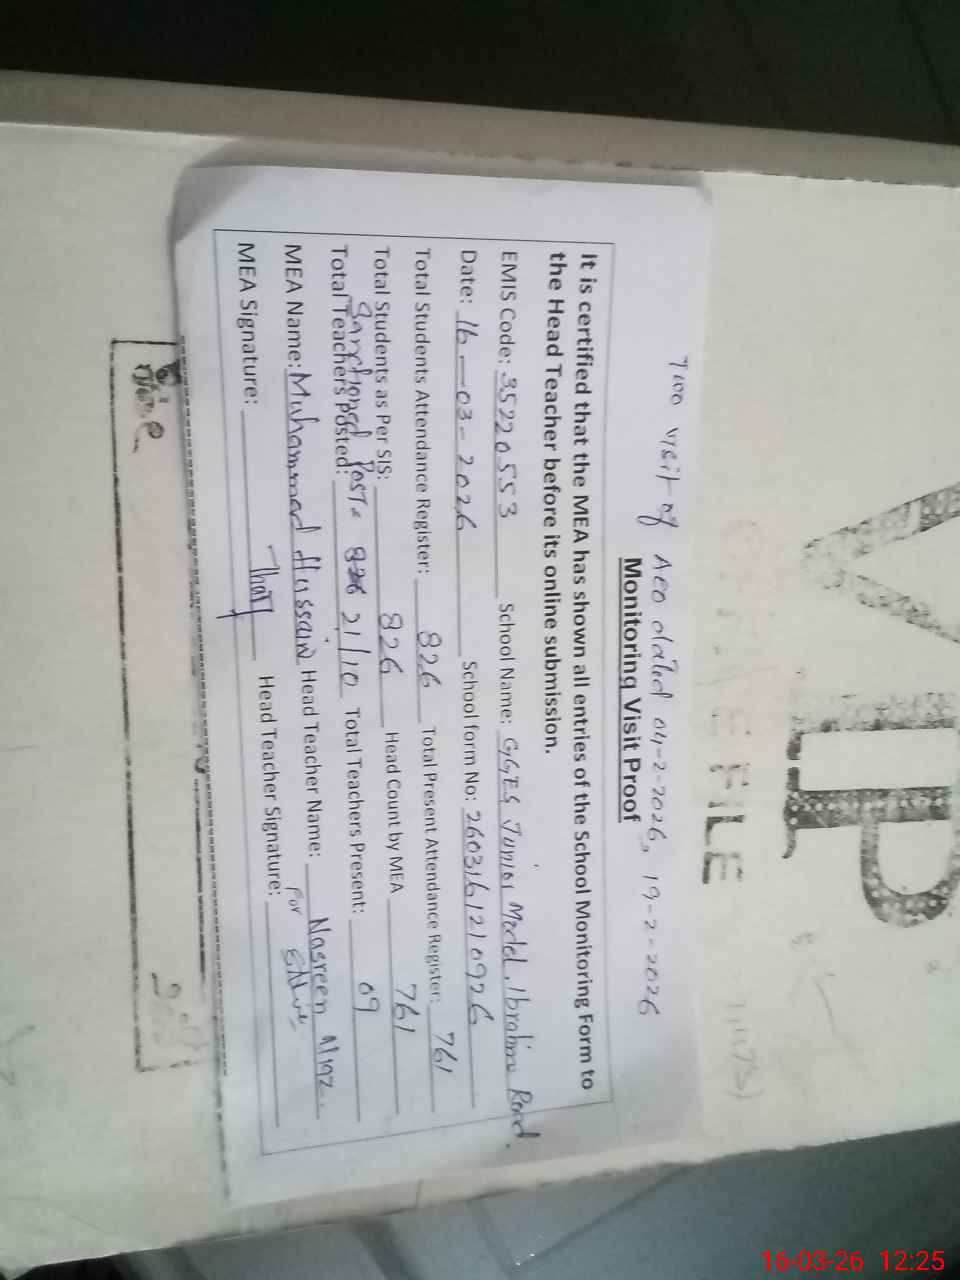 VIP
FILE
Two visit of AEO dated 04-2-2026, 19-2-2026
Monitoring Visit Proof
It is certified that the MEA has shown all entries of the School Monitoring Form to
the Head Teacher before its online submission.
EMIS Code: 35220553 School Name: GGES Junior Model, Ibrahim Road.
Date: 16-03-2026 School form No: 2603161210926
Total Students Attendance Register: 826 Total Present Attendance Register: 761
Total Students as Per SIS: 826 Head Count by MEA 761
Sanctioned Post=
Total Teachers Posted: 21/10 Total Teachers Present: 09
MEA Name: Muhammad Hussain Head Teacher Name: Nasreen Niaz
MEA Signature: Head Teacher Signature:
For
16-03-26 12:25